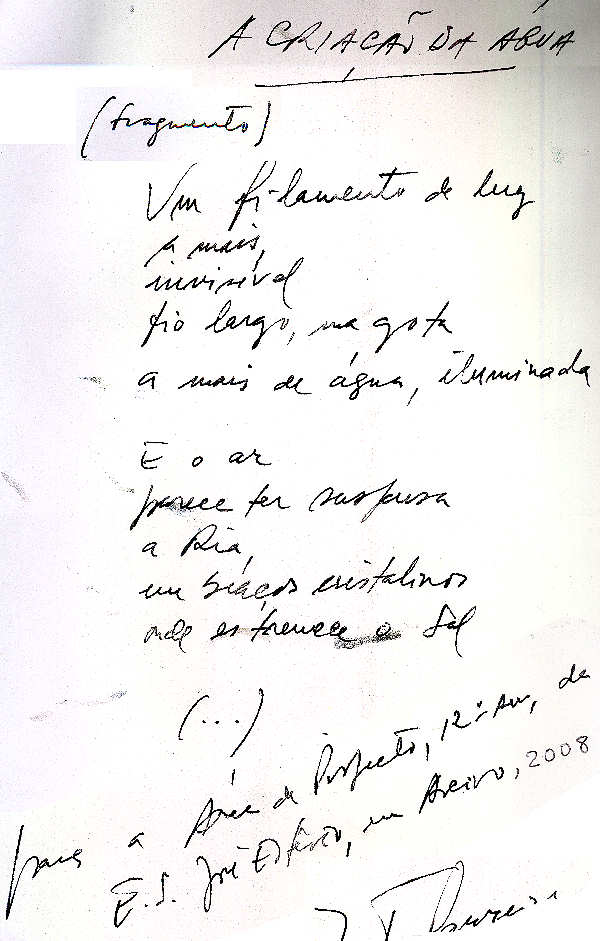 A CRIAÇÃO DA ÁGUA
(fragmento)
Um filamento de luz
a mais,
invisível
fio largo, na gota
a mais de água, iluminada
E o ar
parece ter suspensa
a Ria,
em braços cristalinos
onde estremece o Sal
(...)
para a Área de Projecto, 12º Ano, da
E.S. José Estêvão, em Aveiro, 2008